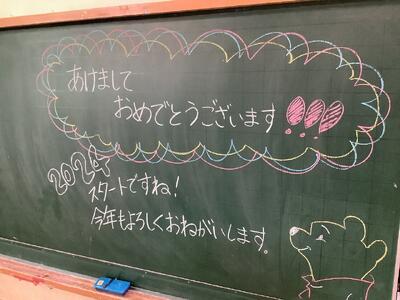 あけまして
おめでとうございます!!!
2024
スタートですね!
今年もよろしくおねがいします。